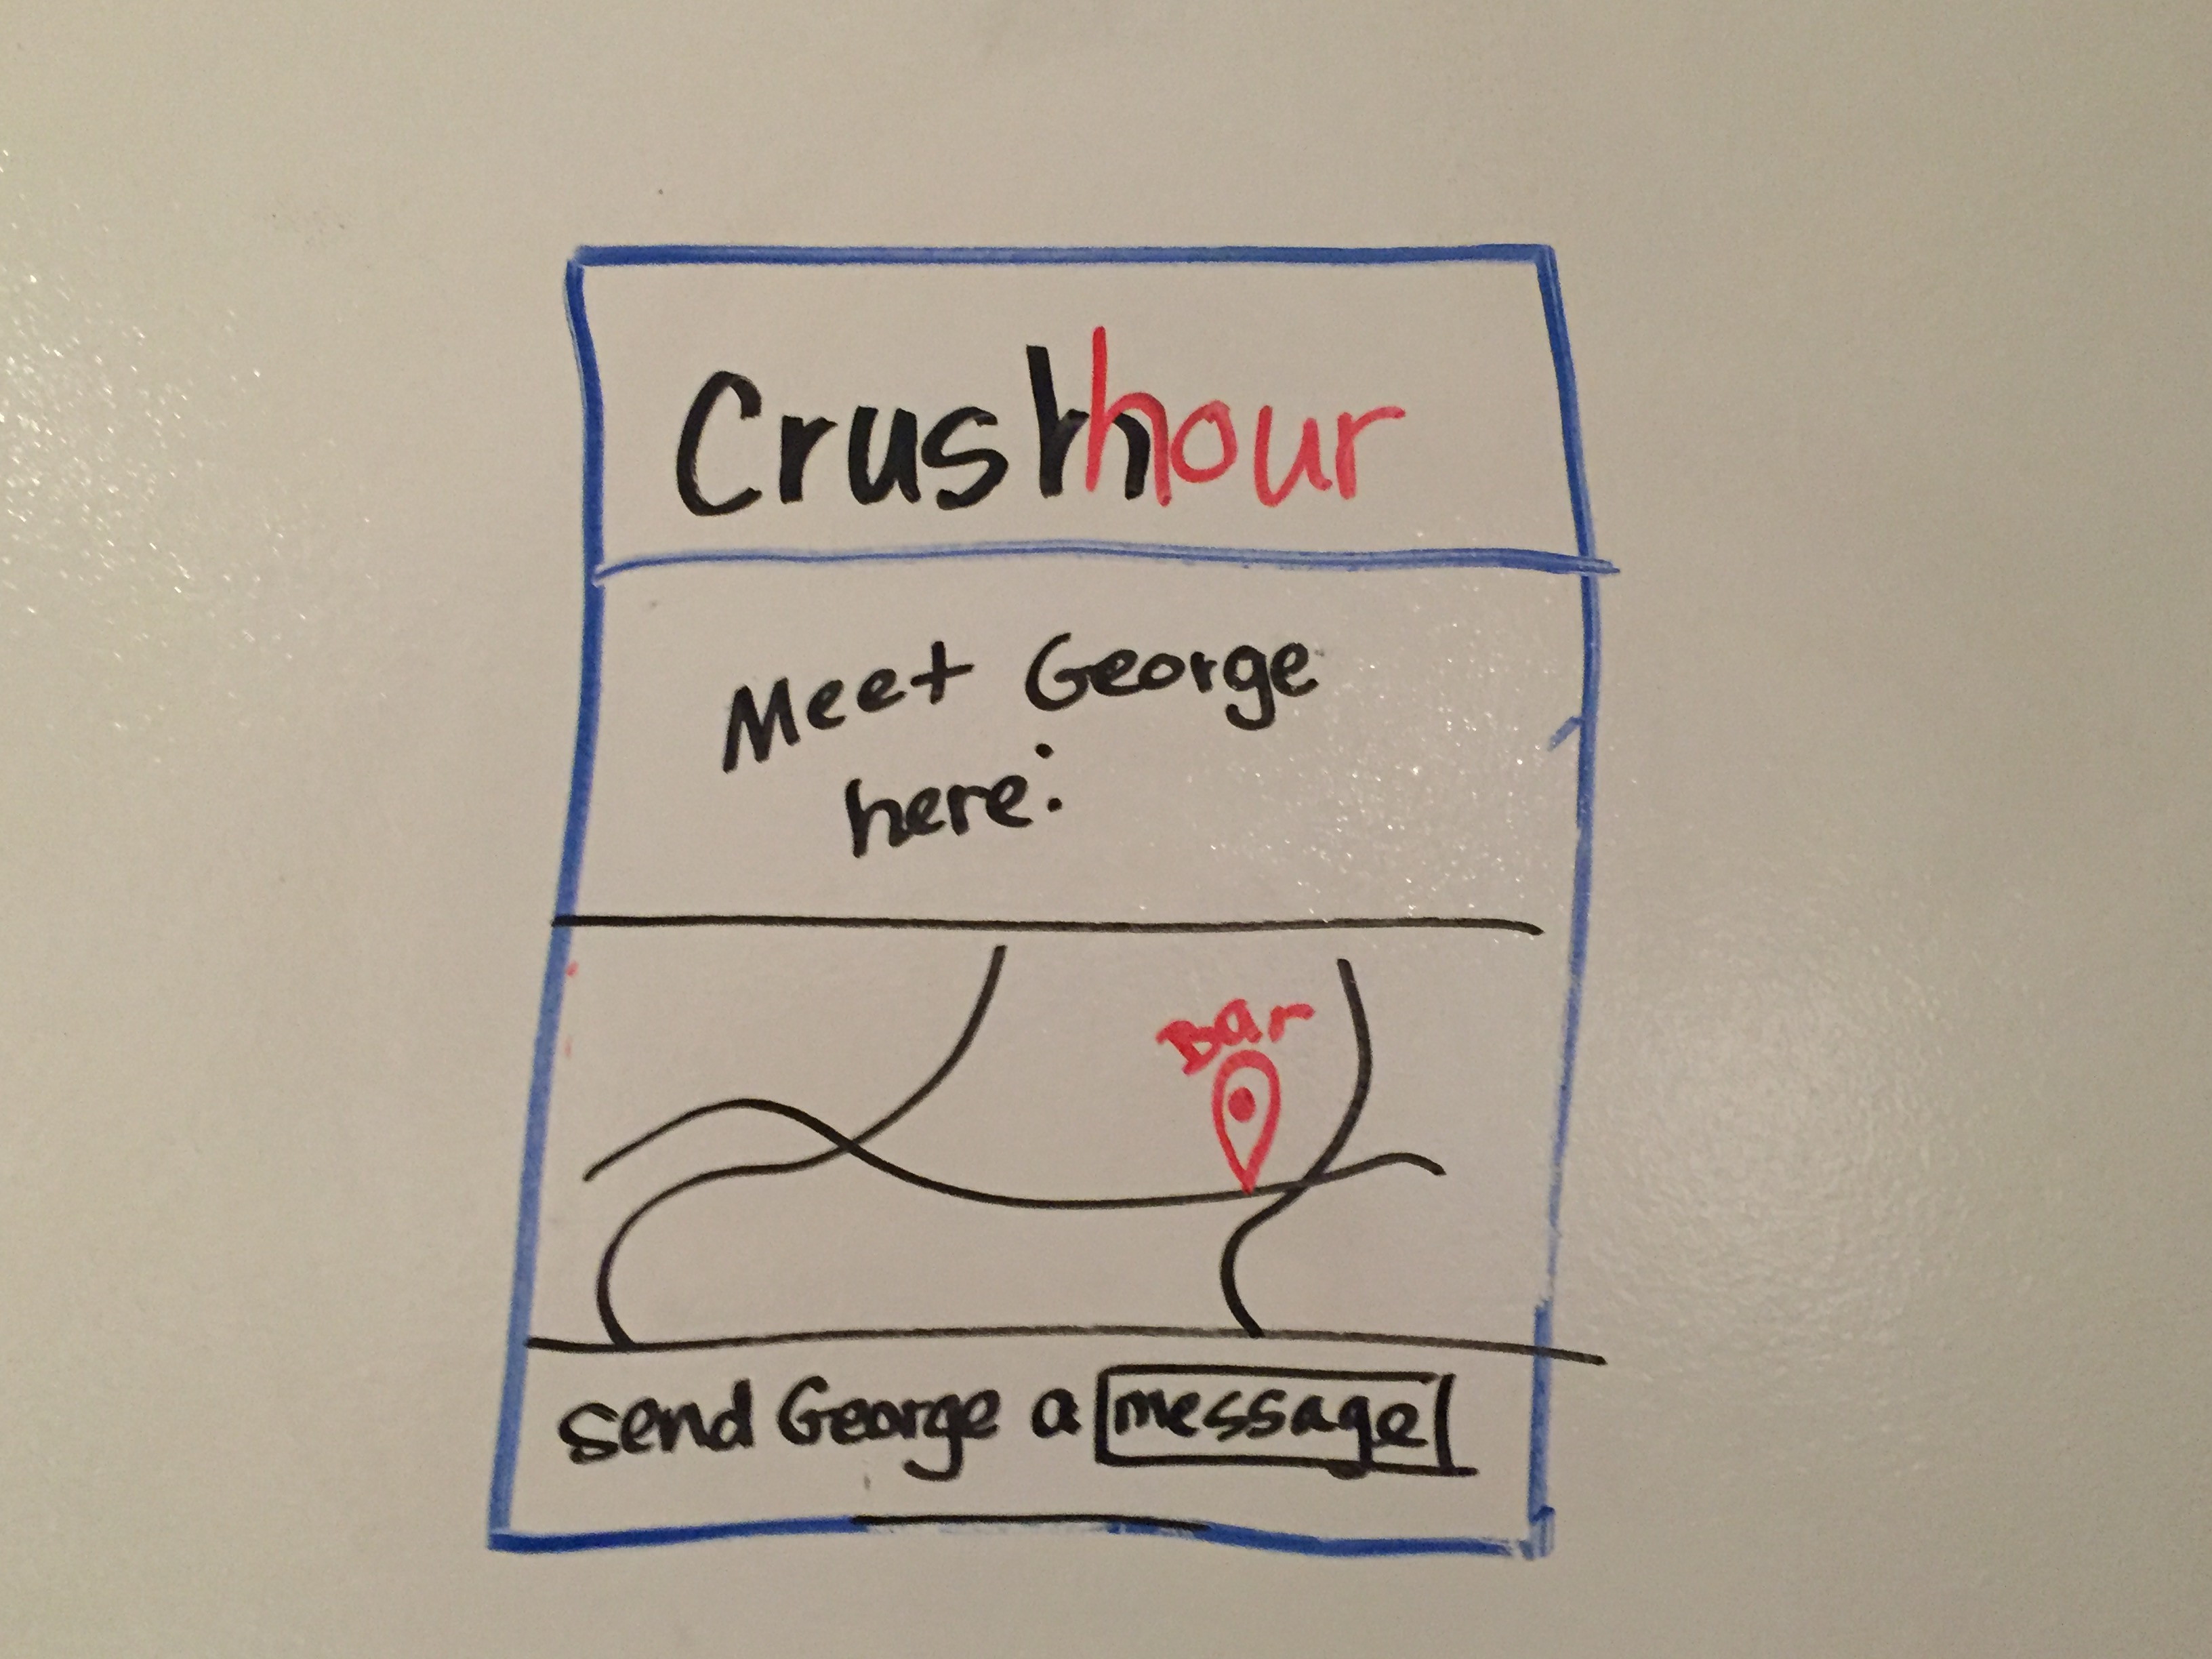 Crushhour
Meet George
here:
Bar
send George a message